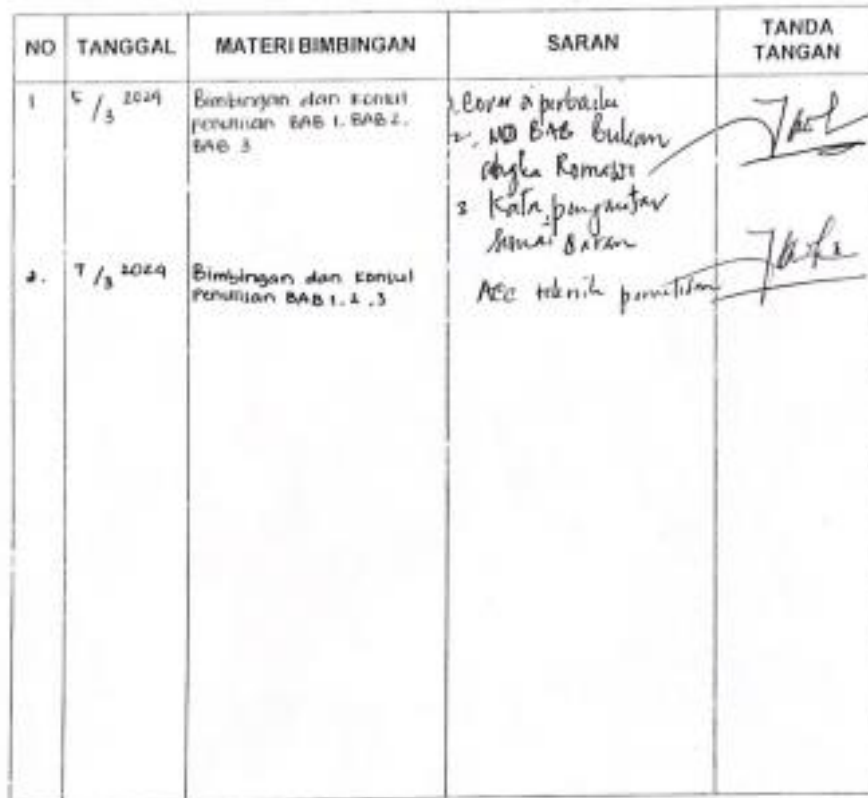 NO TANGGAL MATERI BIMBINGAN SARAN TANDA TANGAN
1 5/3 2024 Bimbingan dan konsul
penulisan BAB 1, BAB 2,
BAB 3
1. Cover diperbaiki
2. NO BAB Bukan
angka Romawi
3 Kata pengantar
sesuai saran
2. 7/3 2024 Bimbingan dan konsul
Penulisan BAB 1. 2. 3
ACC teknik penulisan